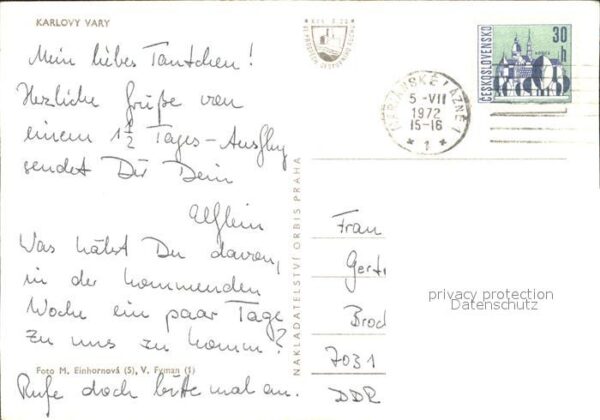 KARLOVY VARY
Mein liebes Tantchen!
Herzliche Grüße von
einem 1 1/2 Tages-Ausflug
sendet Dir Dein
Was hälst Du davon,
in der kommenden
Woche ein paar Tage
zu uns zu komm?
Foto M. Einhornová (5), V. Fyman (1)
Rufe doch bitte mal an.
NAKLADATELSTVÍ ORBIS PRAHA
ČESKOSLOVENSKO
30
h
MARIÁNSKÉ LÁZNĚ 1
5.-VII
1972
15-16
* 1 *
Frau
Gert
Brod
7031
DDR
privacy protection
Datenschutz